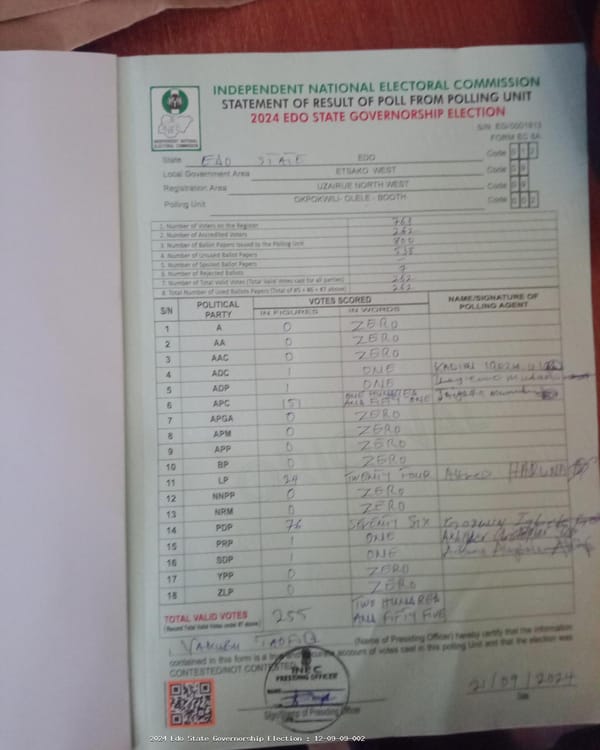 INDEPENDENT NATIONAL ELECTORAL COMMISSION
STATEMENT OF RESULT OF POLL FROM POLLING UNIT
2024 EDO STATE GOVERNORSHIP ELECTION
INEC
INDEPENDENT NATIONAL ELECTORAL COMMISSION
FORM EC 8A
State EDO STATE EDO Code 12
Local Government Area ETSAKO WEST Code 09
Registration Area UZAIRUE NORTH WEST Code 09
Polling Unit OKPOKWILI- OLELE - BOOTH Code 002
1. Number of Voters on the Register 763
2. Number of Accredited Voters 262
3. Number of Ballot Papers Issued to the Polling Unit 800
4. Number of Unused Ballot Papers 538
5. Number of Spoiled Ballot Papers -
6. Number of Rejected Ballots 7
7. Number of Total Valid Votes (Total Valid Votes cast for all parties) 262
8. Total Number of Used Ballots Papers (Total of #5 + #6 + #7 above) 262
S/N POLITICAL PARTY VOTES SCORED NAME/SIGNATURE OF POLLING AGENT
IN FIGURES IN WORDS
1 A 0 ZERO
2 AA 0 ZERO
3 AAC 0 ZERO
4 ADC 1 ONE
5 ADP 1 ONE
6 APC 151 ONE HUNDRED AND FIFTY ONE
7 APGA 0 ZERO
8 APM 0 ZERO
9 APP 0 ZERO
10 BP 0 ZERO
11 LP 24 TWENTY FOUR HARUNA
12 NNPP 0 ZERO
13 NRM 0 ZERO
14 PDP 76 SEVENTY SIX
15 PRP 1 ONE
16 SDP 1 ONE
17 YPP 0 ZERO
18 ZLP 0 ZERO
TOTAL VALID VOTES 255 TWO HUNDRED AND FIFTY FIVE
(Record Total Valid Votes under #7 above)
I, YAKUBU (Name of Presiding Officer) hereby certify that the information
contained in this form is a true accurate account of votes cast in this polling Unit and that the election was
CONTESTED/NOT CONTESTED
INEC
PRESIDING OFFICER
Signature of Presiding Officer
21/09/2024
Date
2024 Edo State Governorship Election : 12-09-09-002